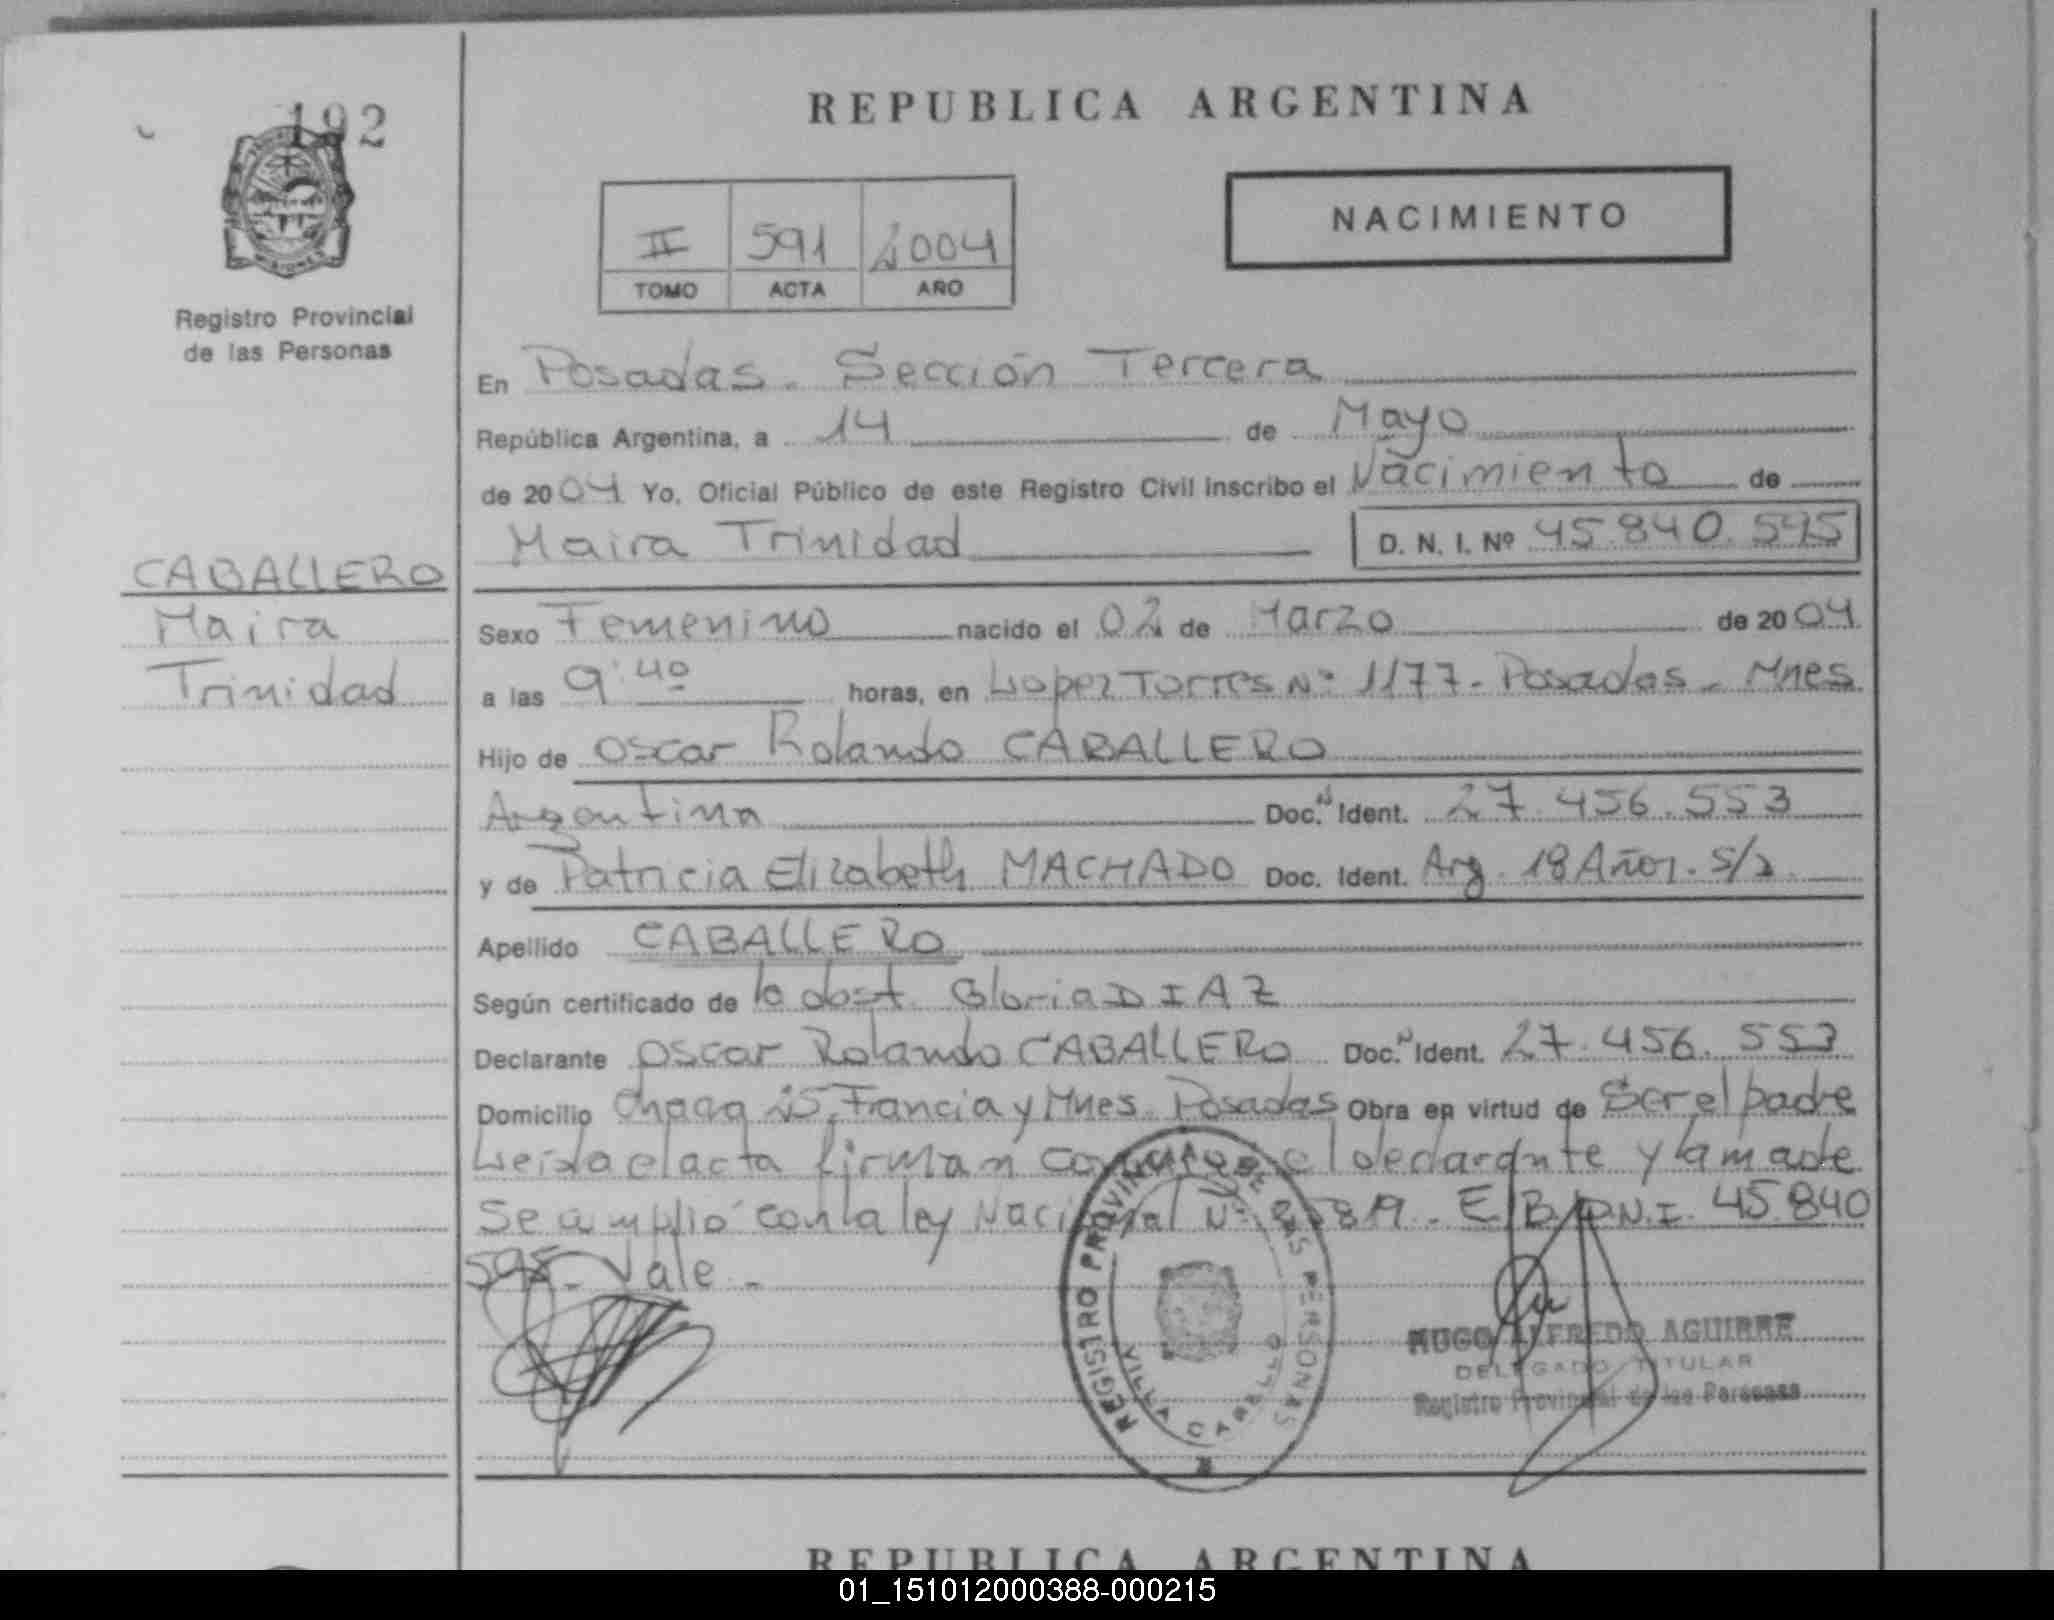 192
REPUBLICA ARGENTINA
NACIMIENTO
II 591 2004
TOMO ACTA AÑO
MISIONES
Registro Provincial
de las Personas
En Posadas. Sección Tercera
República Argentina, a 14 de Mayo
de 2004 Yo, Oficial Público de este Registro Civil Inscribo el Nacimiento de
Maira Trinidad D. N. I. Nº 45.840.595
CABALLERO
Maira
Trinidad
Sexo Femenino nacido el 02 de Marzo de 2004
a las 9:40 horas, en Lopez Torres Nº 1177 - Posadas - Mnes.
Hijo de Oscar Rolando CABALLERO
Argentina Doc. Ident. 27.456.553
y de Patricia Elizabeth MACHADO Doc. Ident. Arg. 18 Años. S/
Apellido CABALLERO
Según certificado de la obst. Gloria DIAZ
Declarante Oscar Rolando CABALLERO Doc. Ident. 27.456.553
Domicilio Francia y Mnes. Posadas Obra en virtud de Ser el padre
Leida el acta firman el declarante y la madre
Se cumplió con la ley Nacional Nº D.N.I. 45.840
595 - Vale -
REGISTRO PROVINCIAL DE LAS PERSONAS
VILLA CABELLO
HUGO ALFREDO AGUIRRE
DELEGADO TITULAR
Registro Provincial de las Personas
REPUBLICA ARGENTINA
01_151012000388-000215